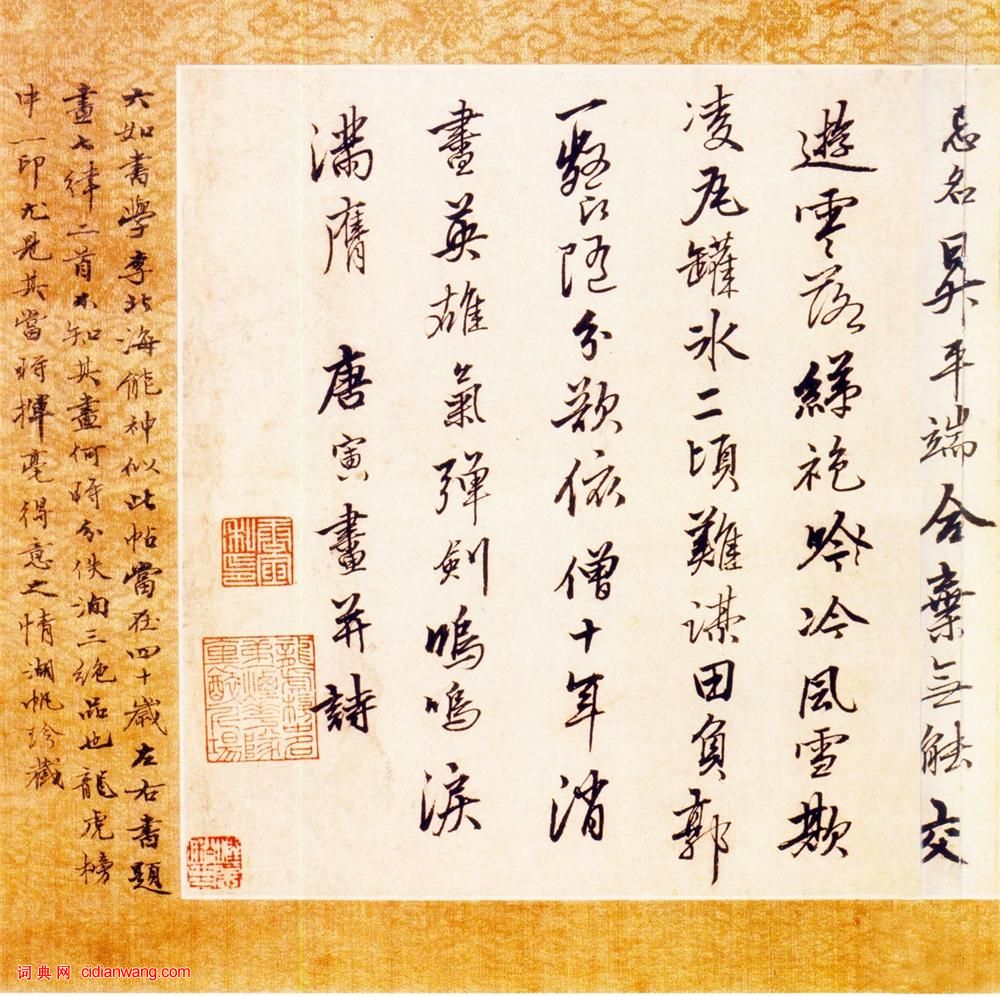 忌名昇平端合棄無能交
遊零落綈袍吟冷風雪欺
凌瓦罐冰二頃難謀田負郭
一餐隨分欲依僧十年消
畫英雄氣彈劍嗚嗚淚
滿膺 唐寅畫并詩
唐寅私印
六如書學李北海能神似此帖當在四十歲左右書題
畫七律二首不知其畫何時分佚洵三絕品也龍虎榜
中一印尤見其當時揮毫得意之情湖帆珍藏
词典网 cidianwang.com